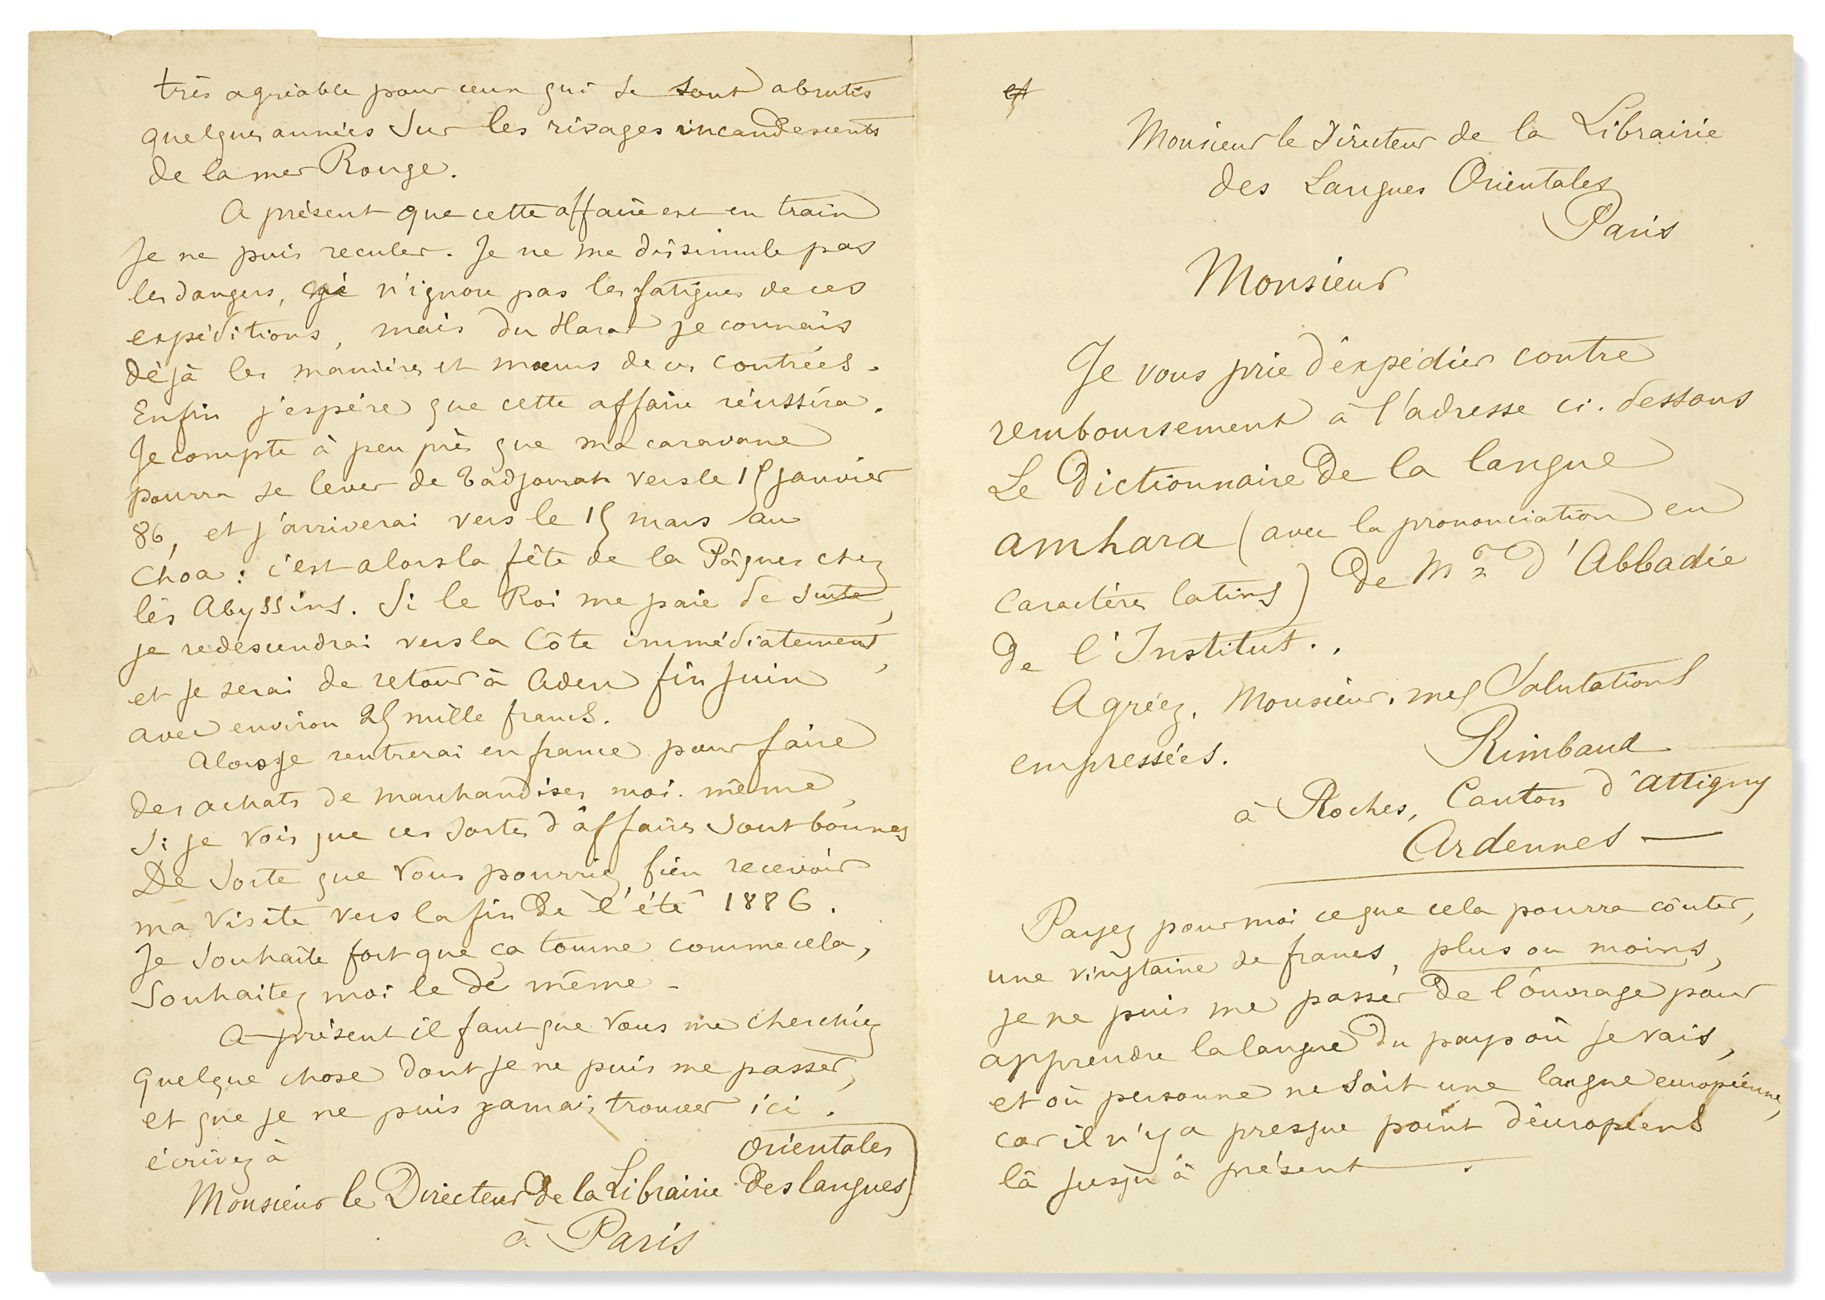 très agréable pour ceux qui se sont abrutis
quelques années sur les rivages incandescents
de la mer Rouge.
A présent que cette affaire est en train
je ne puis reculer. Je ne me dissimule pas
les dangers, je n'ignore pas les fatigues de ces
expéditions, mais du Harar je connais
déjà les manières et mœurs de ces contrées.
Enfin j'espère que cette affaire réussira.
Je compte à peu près que ma caravane
pourra se lever de Tadjourah vers le 15 janvier
86, et j'arriverai vers le 15 mars au
Choa : c'est alors la fête de la Pâques chez
les Abyssins. Si le Roi me paie de suite,
je redescendrai vers la Côte immédiatement,
et je serai de retour à Aden fin Juin
avec environ 25 mille francs.
Alors je rentrerai en france pour faire
des achats de marchandises moi-même,
Si je vois que ces sortes d'affaires sont bonnes
De sorte que vous pourriez bien recevoir
ma visite vers la fin de l'été 1886.
Je souhaite fort que ça tourne comme cela,
Souhaitez moi le de même -
A présent il faut que vous me cherchiez
quelque chose dont je ne puis me passer,
et que je ne puis jamais trouver ici.
écrivez à
Orientales
Monsieur le Directeur de la Librairie des langues
à Paris
et
Monsieur le Directeur de la Librairie
des Langues Orientales
Paris
Monsieur
Je vous prie d'expédier contre
remboursement à l'adresse ci-dessous
Le Dictionnaire de la langue
amhara (avec la prononciation en
caractères latins) de Mr d'Abbadie
de l'Institut.
Agréez, Monsieur, mes salutations
empressées.
Rimbaud
à Roches, Canton d'Attigny
Ardennes —
Payez pour moi ce que cela pourra coûter,
une vingtaine de francs, plus ou moins,
je ne puis me passer de l'ouvrage pour
apprendre la langue du pays où je vais,
et où personne ne sait une langue européenne,
car il n'y a presque point d'européens
là jusqu'à présent.